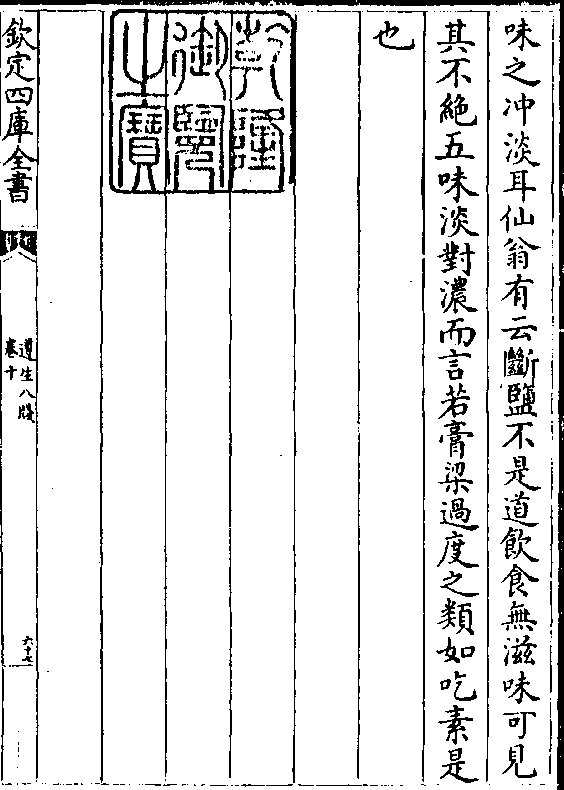 味之冲淡耳仙翁有云斷鹽不是道飲食無滋味可見
其不絶五味淡對濃而言若膏粱過度之類如吃素是
也
乾隆
御覽
之寶
欽定四庫全書
遵生八牋
卷十
六十七